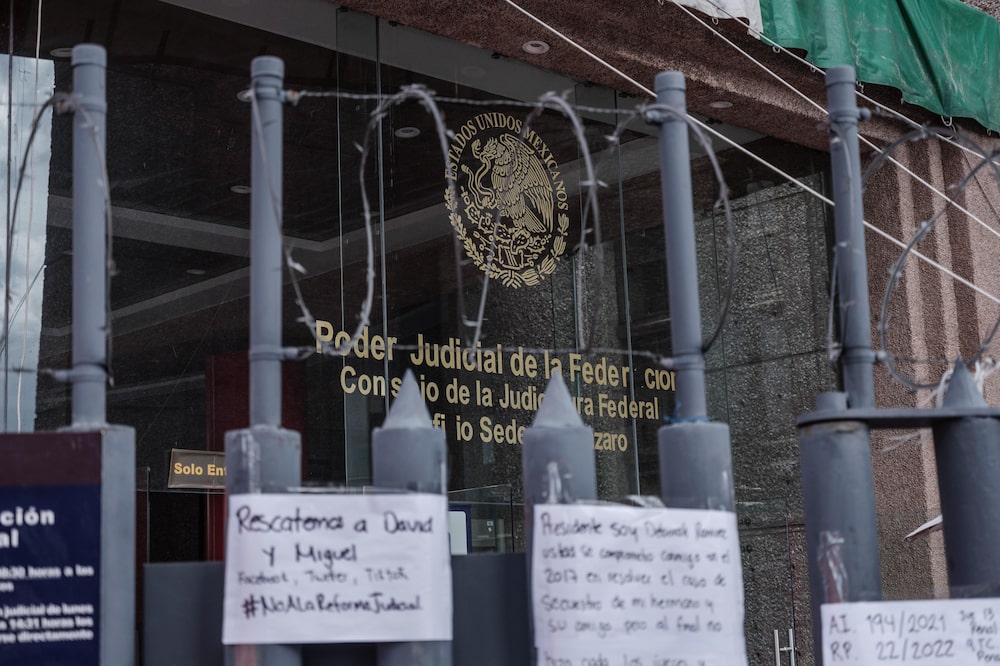 ESTADOS UNIDOS MEXICANOS
Poder Judicial de la Feder cion
Cons jo de la Judic ura Federal
fi io Sede zaro
Solo En
ción
al
8:30 horas a las
judicial de lunes
16:31 horas los
rse directamente
Rescatemos a David
y Miguel
Facebook, Twiter, TikTok
#NoALaReformaJudicial
Presidente soy Deborah
usted se comprometió conmigo en el
2017 en resolver el caso de
secuestro de mi hermano y
su amigo pero al final no
hizo nada los jueces y
A.I. 194/2021
R.P. 22/2022
Penal